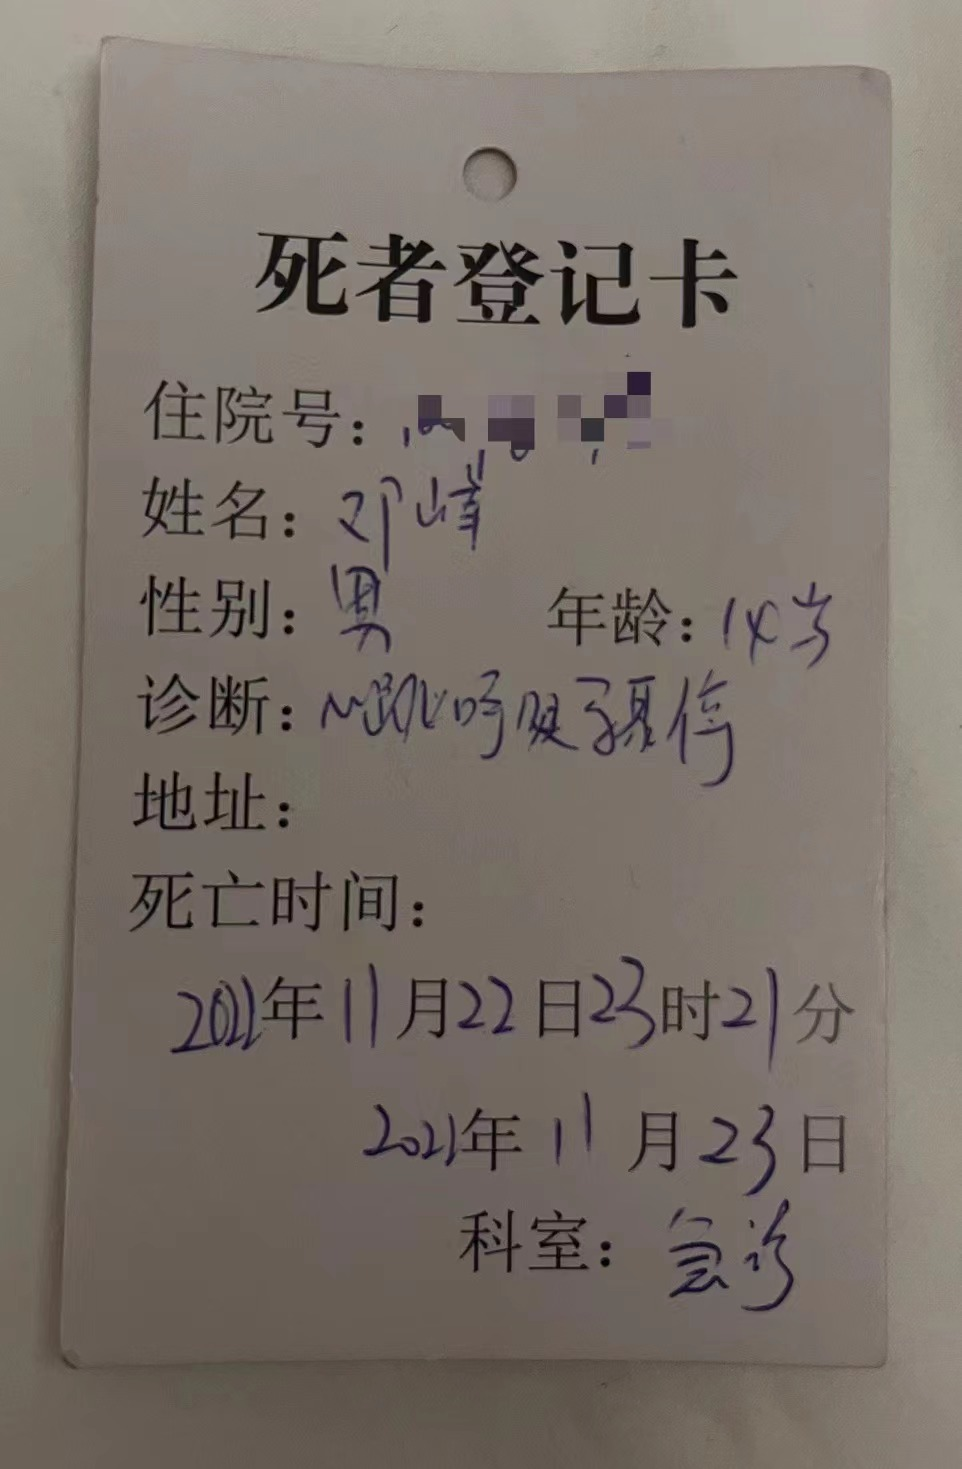 死者登记卡
住院号：
姓名：邓峰
性别：男 年龄：14岁
诊断：心跳呼吸骤停
地址：
死亡时间：
2021年11月22日23时21分
2021年11月23日
科室：急诊